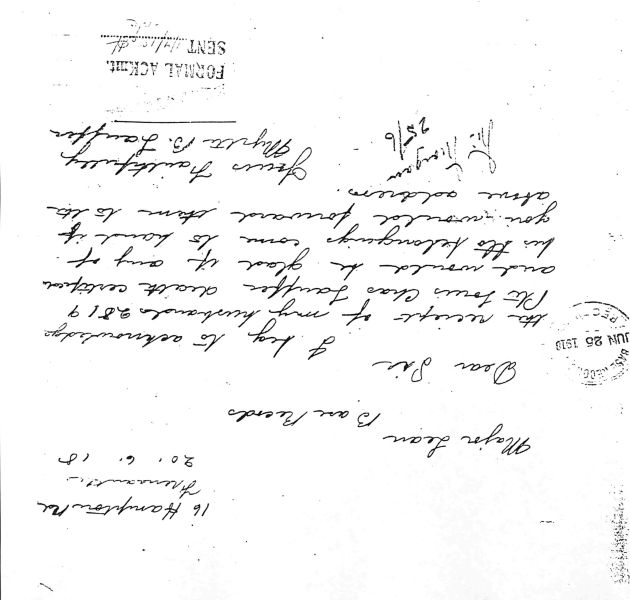 16 Hampton Rd
Fremantle
20.6.18
Major Lean
Base Records
Dear Sir
I beg to acknowledge
the reciept of my husbands 2819
Pte Louis Chas Lauffer death certificate
and would be glad if any of
his belongings come to hand if
you would forward them to the
above address.
Yours Faithfully
Myrtle B. Lauffer
25/6
FORMAL ACKmt.
SENT
JUN 25 1918